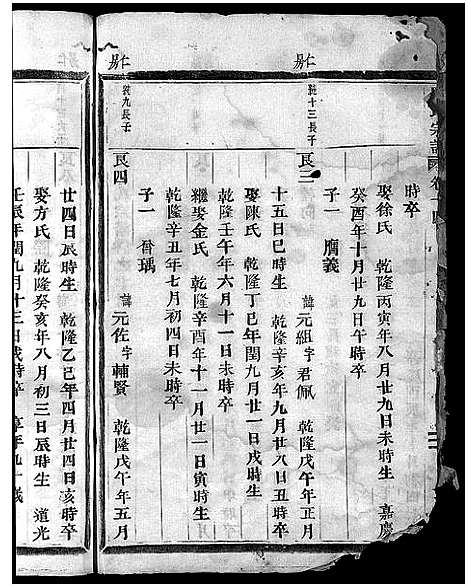 宗譜 卷
時卒
娶徐氏 乾隆丙寅年八月廿九日未時生 嘉慶
癸酉年十月廿九日午時卒
子一 膺義
良三 諱元組字君佩 乾隆戊午年正月
十五日巳時生 乾隆辛亥年九月廿八日丑時卒
娶陳氏 乾隆丁巳年閏九月廿一日戌時生
乾隆壬午年六月十一日未時卒
繼娶金氏 乾隆辛酉年十一月廿一日寅時生
乾隆辛丑年七月初四日未時卒
子一 喬瑀
良四 諱元佐字輔賢 乾隆戊午年五月
廿四日辰時生 乾隆乙巳年四月廿四日亥時卒
娶方氏 乾隆癸亥年八月初三日辰時生 道光
壬辰年閏九月十三日戌時卒 享年九十歲
十三長子
九長子